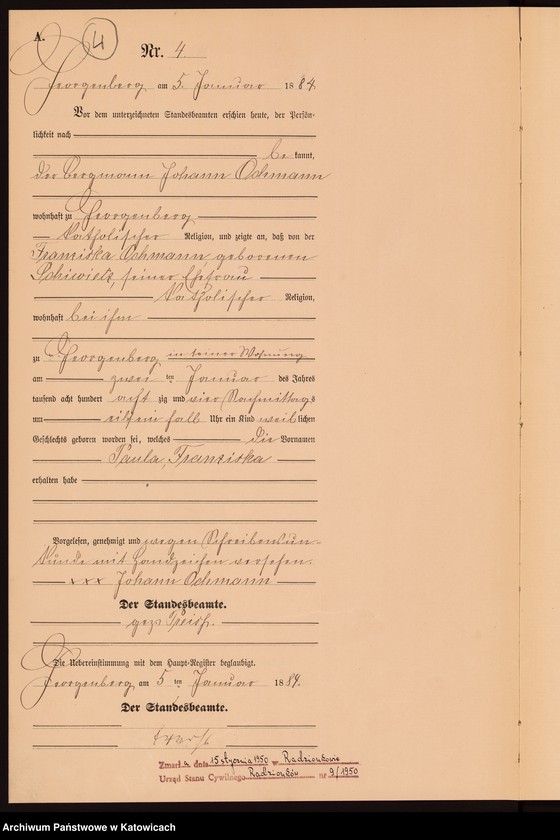 A.
4
Nr. 4
Georgenberg am 5. Januar 1884
Vor dem unterzeichneten Standesbeamten erschien heute, der Persön-
lichkeit nach
be kannt,
der Bergmann Johann Ochmann
wohnhaft zu Georgenberg
katholischer Religion, und zeigte an, daß von der
Franziska Ochmann, geborenen
Schiwietz, seiner Ehefrau
katholischer Religion,
wohnhaft bei ihm
zu Georgenberg in seiner Wohnung
am zwei ten Januar des Jahres
tausend acht hundert acht zig und vier Nachmittags
um ein halb Uhr ein Kind weib lichen
Geschlechts geboren worden sei, welches die Vornamen
Paula, Franziska
erhalten habe
Vorgelesen, genehmigt und wegen Schreibensun-
kunde mit Handzeichen versehen.
xxx Johann Ochmann
Der Standesbeamte.
gez.
Die Uebereinstimmung mit dem Haupt-Register beglaubigt.
Georgenberg am 5 ten Januar 1884.
Der Standesbeamte.
Zmarła dnia 15 stycznia 1950 w Radzionkowie
Urząd Stanu Cywilnego Radzionków nr 9/1950
Archiwum Państwowe w Katowicach